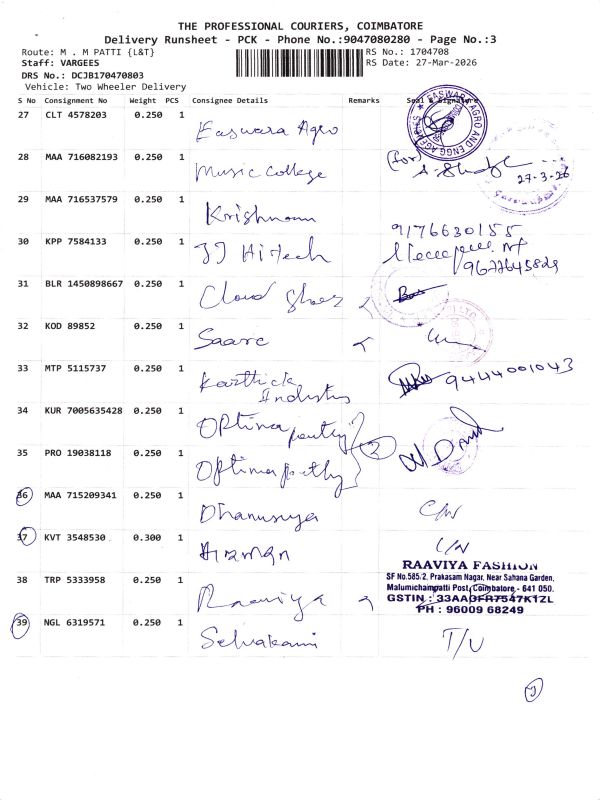 THE PROFESSIONAL COURIERS, COIMBATORE
Delivery Runsheet - PCK - Phone No.:9047080280 - Page No.:3
Route: M . M PATTI {L&T}
RS No.: 1704708
Staff: VARGEES
RS Date: 27-Mar-2026
DRS No.: DCJB170470803
Vehicle: Two Wheeler Delivery
S No Consignment No Weight PCS Consignee Details Remarks Seal & Signature
27 CLT 4578203 0.250 1 Easwara Agro
28 MAA 716082193 0.250 1 Music College (for)
27-3-26
29 MAA 716537579 0.250 1 Krishnan
9176630155
30 KPP 7584133 0.250 1 JJ Hitech
9677645829
31 BLR 1450898667 0.250 1 Cloud Shoes
32 KOD 89852 0.250 1 Saarc
33 MTP 5115737 0.250 1 Karthick Industries 9444001043
34 KUR 7005635428 0.250 1 Optima poultry
2
35 PRO 19038118 0.250 1 Optima poultry
36 MAA 715209341 0.250 1 Dhanusuya C/N
37 KVT 3548530 0.300 1 Arman C/N
RAAVIYA FASHION
SF No.585/2, Prakasam Nagar, Near Sahana Garden,
Malumichampatti Post, Coimbatore - 641 050.
38 TRP 5333958 0.250 1 Raaviya
GSTIN : 33AADFR7547K1ZL
PH : 96009 68249
39 NGL 6319571 0.250 1 Selvakani T/U